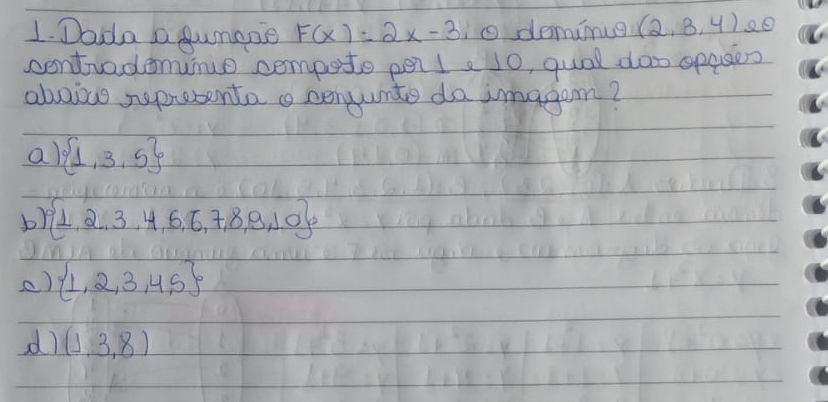 1. Dada a função F(x) = 2x - 3, o domínio (2, 3, 4) e o
contradomínio composto por 1 e 10, qual das opções
abaixo representa o conjunto da imagem?
a) {1, 3, 5}
b) {1, 2, 3, 4, 5, 6, 7, 8, 9, 10}
c) {1, 2, 3, 4, 5}
d) (1, 3, 8)